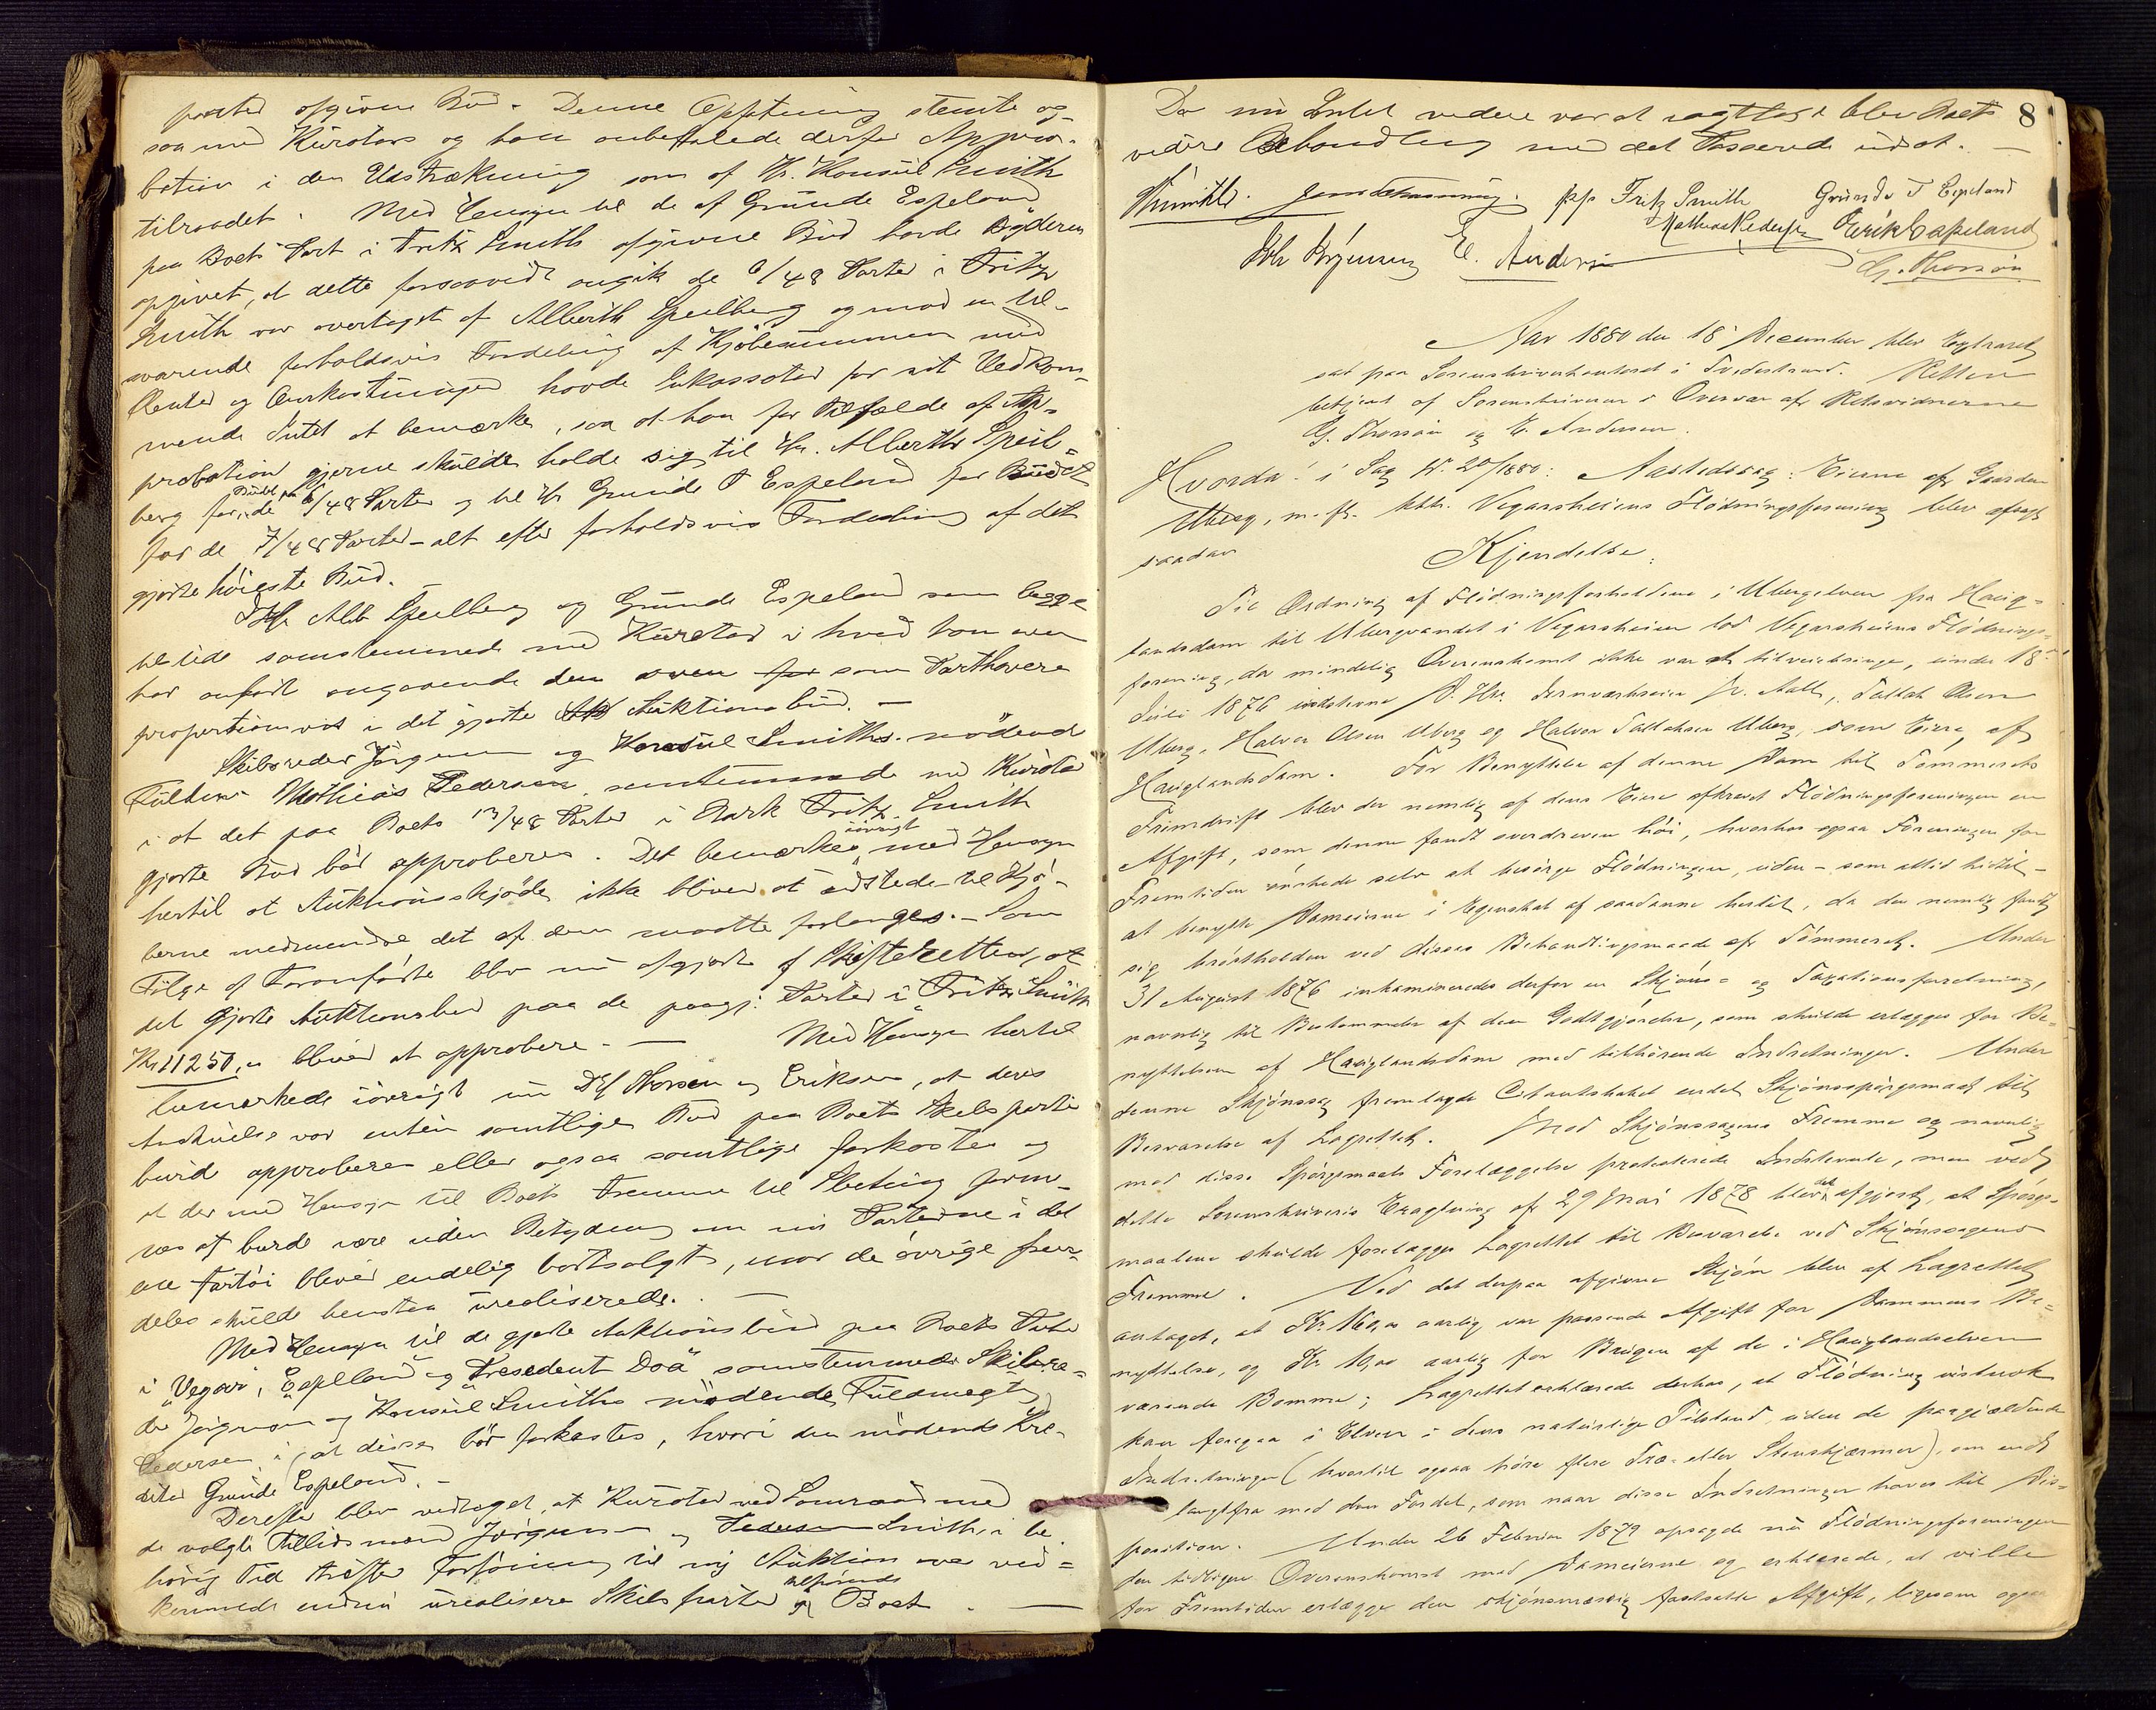 parter afgivne Bud. Denne Opfatning stemte og-
saa med Kurators og han anbefalede derfor Appro-
bation i den Udstrækning som af Hr. Konsul Smith
tilraadet. Med Hensyn til de af Grunde Espeland
paa Boets Part i Fritz Smith afgivne Bud havde Byderen
opgivet, at dette forsaavidt angik de 6/48 Parter i Fritz
Smith var overtaget af Alberth Speilberg og mod en til-
svarende forholdsvis Fordeling af Kjøbesummen med
Renter og Omkostninger havde Inkassator for sit Vedkom-
mende Intet at bemærke, saa at han for Tilfælde af Ap-
probation gjerne skulde holde sig til Hr. Alberth Speil-
berg for Budet paa de 6/48 Parter og til Hr Grunde T Espeland for Budet
for de 7/48 Parter - alt efter forholdsvis Fordeling af det
gjorte høieste Bud.
DHr Alb Speilberg og Grunde Espeland som begge
tilstede samstemmede med Kurator i hvad han oven
har anført angaaende den oven for som Parthavere
proportionvis i det gjorte Auktionsbud. —
Skibsreder Jørgensen og Konsul Smiths mødende
Fuldm. Mathias Pedersen, samstemmede med Kurator
i at det paa Boets 13/48 Parter i Bark Fritz Smith
gjorte Bud bør approberes. Det bemærkes iøvrigt med Hensyn
hertil at Auktionsskjøde ikke bliver at udstede til Kjø-
berne medmindre det af dem maatte forlanges. — Som
Følge af Foranførte blev nu afgjort af Skifteretten, at
det gjorte Auktionsbud paa de paagj: Parter i Fritz Smith
Kr 11250,00 bliver at approbere. — Med Hensyn hertil
bemærkede iøvrigt nu DHr Thorsøn og Eriksen, at deres
Anskuelse var enten samtlige Bud paa Boets Skibsparter
burde approberes eller ogsaa samtlige forkastes og
at der med Hensyn til Boets Fremme til Slutning formе-
nes at burde være uden Betydning om nu Parterne i det
ene Fartøi bliver endelig bortsolgt, naar de øvrige frem-
deles skulde henstaa urealiserede. —
Med Hensyn til de gjorte Auktionsbud paa Boets Parter
i "Vegar", "Espeland" og "President Doä" samstemmede Skibsre-
der Jørgensen og Konsul Smiths mødende Fuldmægtig
Pedersen i, at disse bør forkastes, hvori den mødende Kre-
ditor Grunde Espeland. —
Derefter blev vedtaget, at Kurator ved Samraad med
de valgte Tillidsmænd Jørgensen og Pedersen Smith, i be-
hørig Tid træffer Forføining til ny Auktion over ved-
kommende endnu urealisere Skibsparter tilhørende Boet. —
8
Da nu Intet videre var at iagttage blev Boets
videre Behandling med det Passerede udsat. —
pp. Fritz Smith Grunde T Espeland
Mathias Pedersen Eerik Espeland
Joh Jørgensen E. Andersen
G. Thorsøn
Aar 1880 den 18 December blev Extraret
sat paa Sorenskriverkontoret i Tvedestrand. Retten
betjent af Sorenskriveren i Overvær af Retsvidnerne
G. Thorsøn og E. Andersen.
Hvorda: i Sag No. 20/1880: Aastedssag: Eierne af Gaarden
Uberg, m. fl. ktr. Vegarsheiens Flødningsforening blev afsagt
saadan Kjendelse:
Til Ordning af Flødningsforholdene i Ubergelven fra Haug-
landsdam til Ubergvandet i Vegarsheien lod Vegarsheiens Flødnings-
forening, da mindelig Overenskomst ikke var at tilveiebringe, under 18de
Juli 1876 indstevne D.Hrr. Jernværkseier N. Aall, Tallak Olsen
Uberg, Halvor Olsen Uberg og Halvor Tallaksen Uberg, som Eiere af
Hauglandsdam. For Benyttelse af denne Dam til Tømmerets
Fremdrift blev der nemlig af dens Eiere afkrævet Flødningsforeningen en
Afgift, som denne fandt overdreven høi, hvorhos ogsaa Foreningen for
Fremtiden ønskede selv at besørge Flødningen, uden - som altid hidtil -
at benytte Dameierne i Egenskab af saadanne hertil, da den nemlig fandt
sig brøstholden ved disses Behandlingsmaade af Tømmeret. Under
31 August 1876 inkamineredes derfor en Skjøns- og Taxationsforretning,
navnlig til Bestemmelse af den Godtgjørelse, som skulde erlægges for Be-
nyttelsen af Hauglandsdam med tilhørende Indretninger. Under
denne Skjønssag fremlagde Citantskabet endel Skjønsspørgsmaal til
Besvarelse af Lagrettet. Mod Skjønssagens Fremme og navnlig
mod disse Spørgsmaals Forelæggelse protesterede Indstevnte, men ved
dette Sorenskriveris Eragtning af 29 Mai 1878 blev det afgjort, at Spørgs-
maalene skulde forelægges Lagrettet til Besvarelse ved Skjønssagens
Fremme. Ved det derpaa afgivne Skjøn blev af Lagrettet
antaget, at Kr. 160,00 aarlig var passende Afgift for Dammens Be-
nyttelse, og Kr. 10,00 aarlig for Brugen af de i Hauglandselven
værende Bomme; Lagrettet erklærede derhos, at Flødning vistnok
kan foregaa i Elven i dens naturlige Tilstand uden de paagjældende
Indretninger (hvortil ogsaa høre flere Træ- eller Stenskjærmer), om end
langtfra med den Fordel, som naar disse Indretninger haves til Dis-
position. Under 26 Februar 1879 opsagde nu Flødningsforeningen
den tidligere Overenskomst med Dameierne og erklærede, at ville
for Fremtiden erlægge den skjønsmæssig fastsatte Afgift, ligesom ogsaa